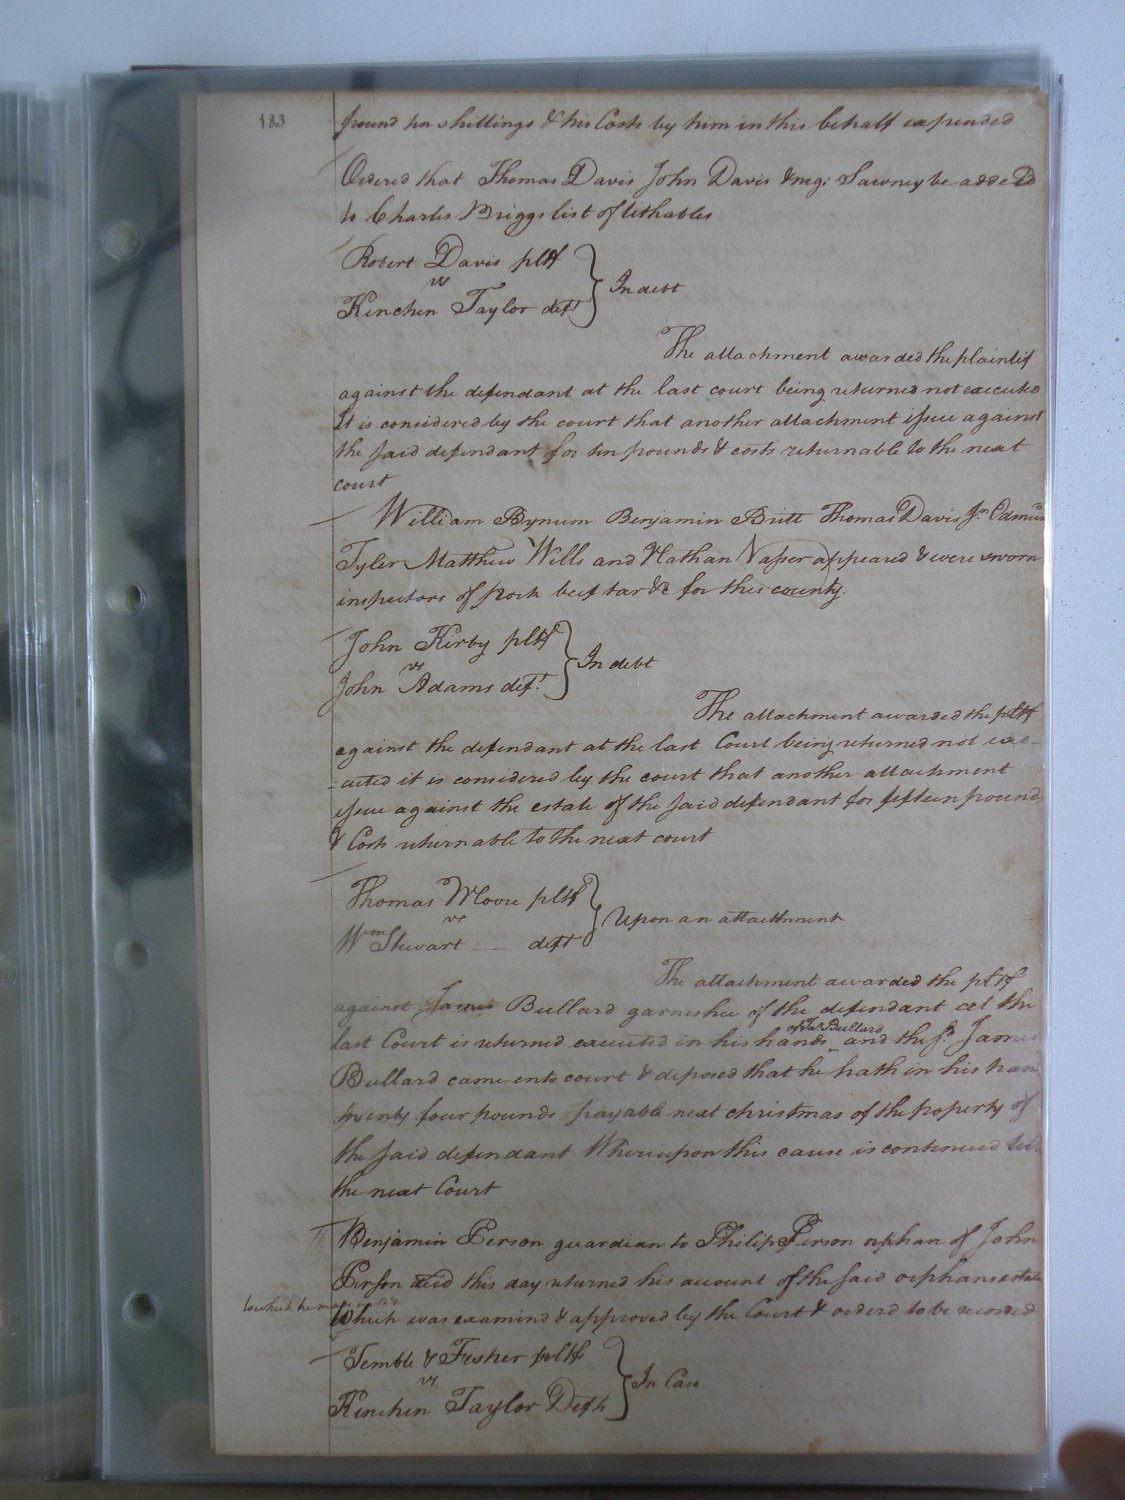 183
pound ten shillings & his Costs by him in this behalf expended
Ordered that Thomas Davis John Davis & negr Sawney be added
to Charles Briggs list of tithables
Robert Davis pltf
vs
Kinchen Taylor deft
In debt
The attachment awarded the plaintif
against the defendant at the last court being returned not executed
It is considered by the court that another attachment issue against
the said defendant for ten pounds & costs returnable to the next
court
William Bynum Benjamin Britt Thomas Davis Jr Edmund
Tyler Matthew Wills and Nathan Vasser appeared & were sworn
inspectors of pork beef tar &c for this county.
John Kirby pltf
vs
John Adams deft
In debt
The attachment awarded the pltf
against the defendant at the last Court being returned not exe-
-cuted it is considered by the court that another attachment
issue against the estate of the said defendant for fifteen pounds
& Costs returnable to the next court
Thomas Moore pltf
vs
Wm Stewart deft
Upon an attachment
The attachment awarded the pltf
against James Bullard garneshee of the defendant at the
of Js Bullard
last Court is returned executed in his hands and the sd James
Bullard came into court & deposed that he hath in his hand
twenty four pounds payable next christmas of the property of
the said defendant Whereupon this cause is continued till
the next Court
Benjamin Person guardian to Philip Person orphan of John
Person decd this day returned his account of the said orphans estate
to which he made oath
Which was examind & approved by the Court & orderd to be recorded
Temble & Fisher pltfs
vs
Kinchen Taylor Deft
In Case